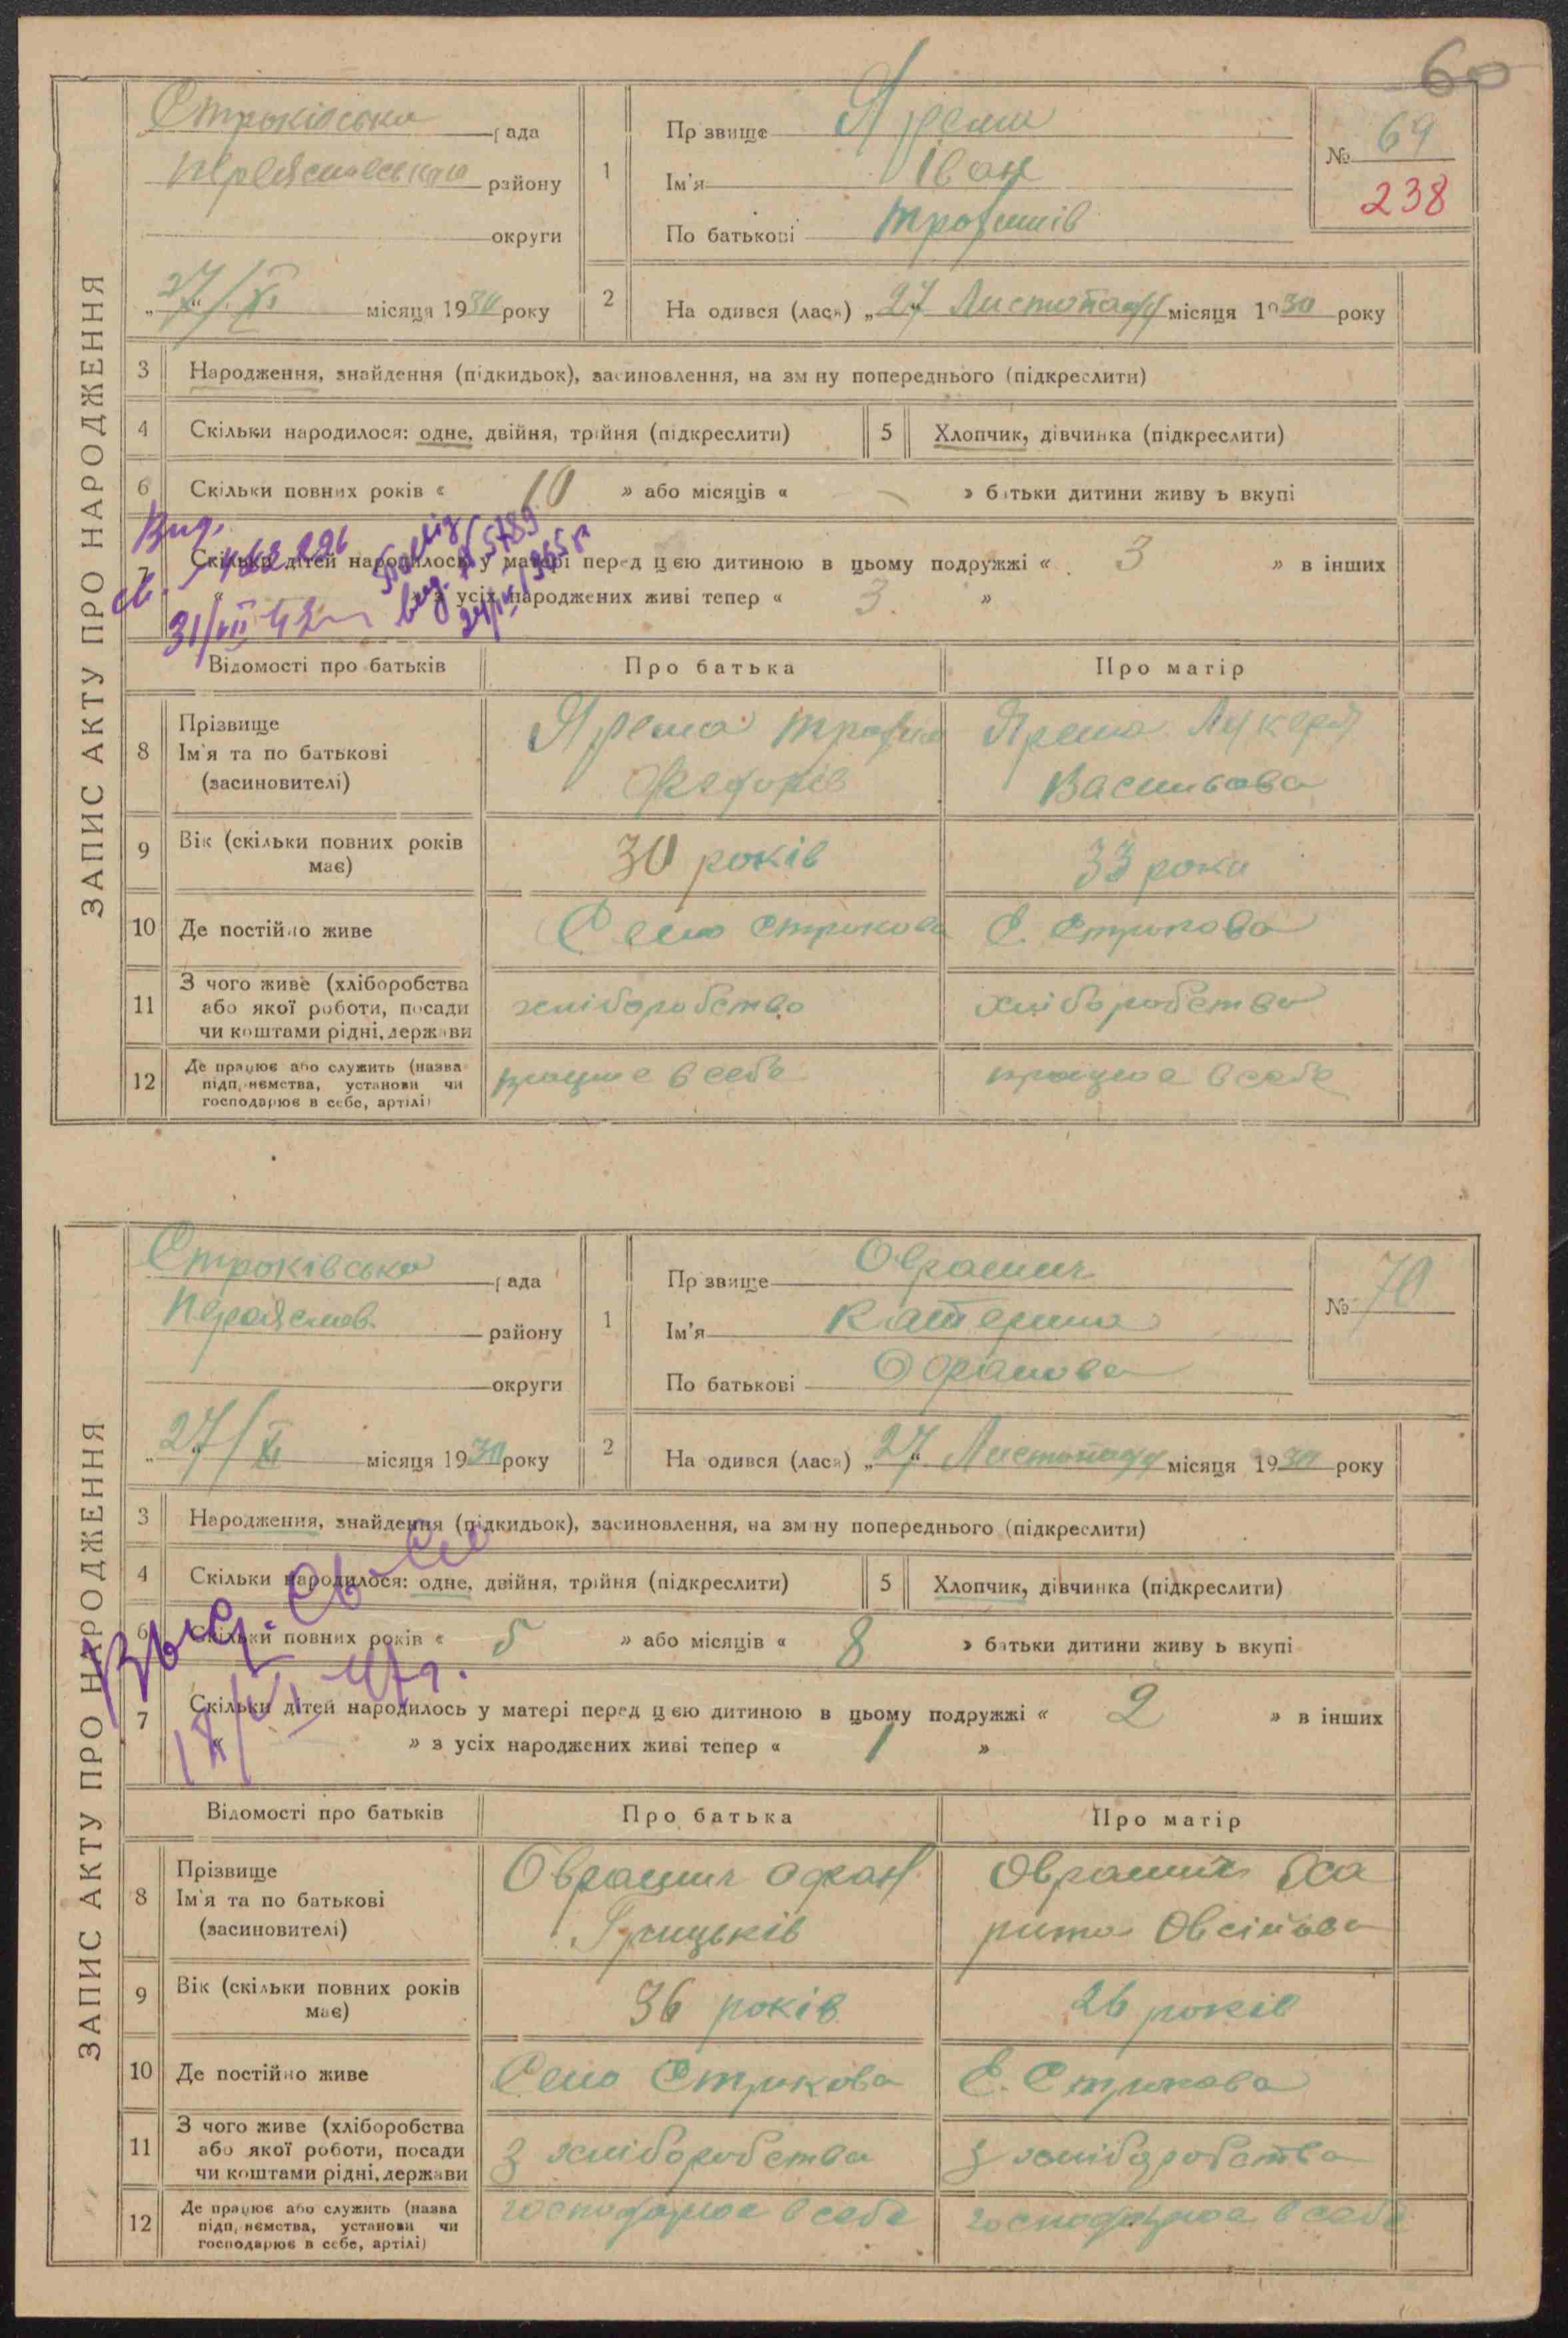 60
ЗАПИС АКТУ ПРО НАРОДЖЕННЯ
Строківська рада
Переяславського району
округи
„27/XI місяця 1930 року
1
Прізвище Ярема
Ім'я Іван
По батькові Трофимів
№ 69
238
2 Народився (лася) „27" Листопаду місяця 1930 року
3 Народження, знайдення (підкидьок), засиновлення, на зміну попереднього (підкреслити)
4 Скільки народилося: одне, двійня, трійня (підкреслити)
5 Хлопчик, дівчинка (підкреслити)
6 Скільки повних років « 10 » або місяців « — » батьки дитини живуть вкупі
Вид.
7 Скільки дітей народилось у матері перед цією дитиною в цьому подружжі « 3 » в інших
« » з усіх народжених живі тепер « 3. »
Відомості про батьків
Про батька
Про матір
8 Прізвище Ім'я та по батькові (засиновителі)
Ярема Трофим Федорів
Ярема Лукера Васильова
9 Вік (скільки повних років має)
30 років
33 роки
10 Де постійно живе
Село Строкова
С. Строкова
11 З чого живе (хліборобства або якої роботи, посади чи коштами рідні, держави
хліборобство
хліборобство
12 Де працює або служить (назва підприємства, установи чи господарює в себе, артілі)
працює в себе
працює в себе
ЗАПИС АКТУ ПРО НАРОДЖЕННЯ
Строківська рада
Переяслов. району
округи
„27/XI місяця 1930 року
1
Прізвище Оврашич
Ім'я Катерина
По батькові Офанова
№ 70
2 Народився (лася) „27" Листопаду місяця 1930 року
3 Народження, знайдення (підкидьок), засиновлення, на зміну попереднього (підкреслити)
4 Скільки народилося: одне, двійня, трійня (підкреслити)
5 Хлопчик, дівчинка (підкреслити)
6 Скільки повних років « 5 » або місяців « 8 » батьки дитини живуть вкупі
Выд. св-во
7 Скільки дітей народилось у матері перед цією дитиною в цьому подружжі « 2 » в інших
« » з усіх народжених живі тепер « 1 »
Відомості про батьків
Про батька
Про матір
8 Прізвище Ім'я та по батькові (засиновителі)
Оврашич Офан Грицьків
Оврашич Овсійова
9 Вік (скільки повних років має)
36 років
26 років
10 Де постійно живе
Село Строкова
С. Строкова
11 З чого живе (хліборобства або якої роботи, посади чи коштами рідні, держави
з хліборобства
з хліборобства
12 Де працює або служить (назва підприємства, установи чи господарює в себе, артілі)
господарює в себе
господарює в себе